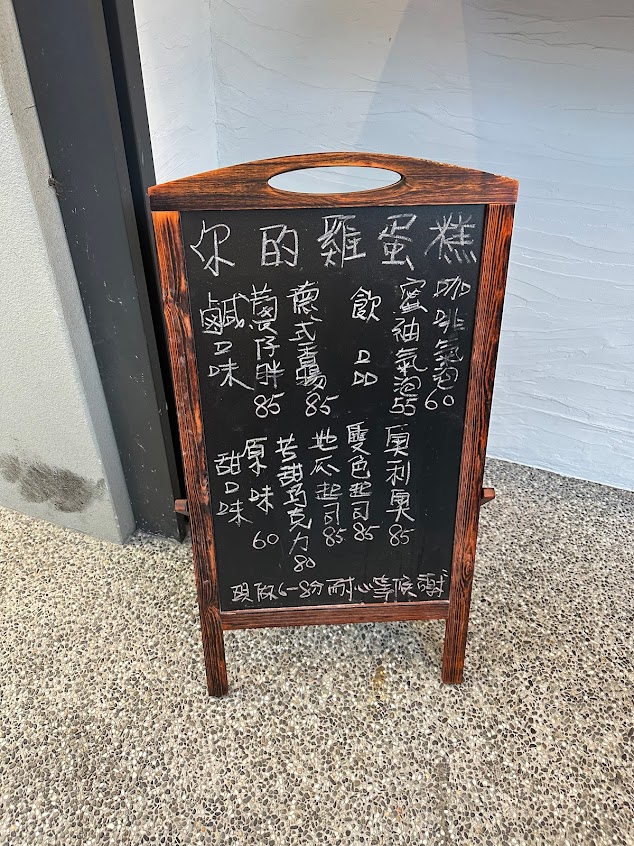 你的雞蛋糕
鹹口味
仔胖 85
德式香腸 85
飲品
蜜柚氣泡 55
咖啡氣泡 60
甜口味
原味 60
苦甜巧克力 80
地瓜起司 85
雙色起司 85
奧利奧 85
現做6-8分耐心等候